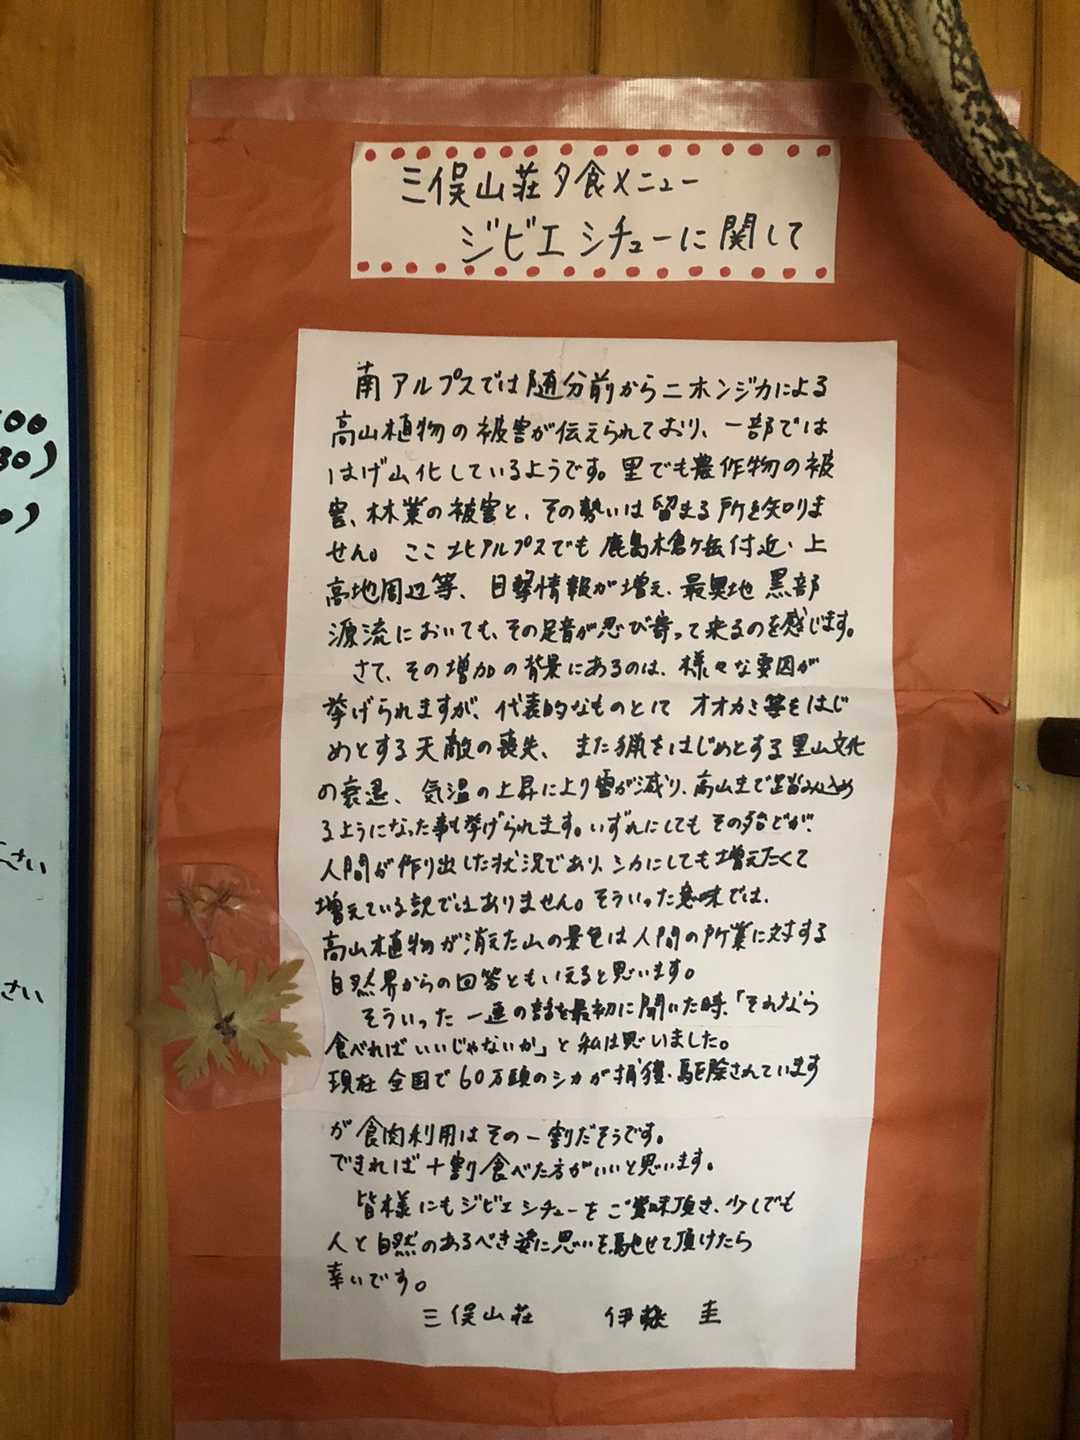 三俣山荘夕食メニュー
ジビエシチューに関して
南アルプスでは随分前からニホンジカによる
高山植物の被害が伝えられており、一部では
はげ山化しているようです。里でも農作物の被
害、林業の被害と、その勢いは留まる所を知りま
せん。ここ北アルプスでも鹿島槍ヶ岳付近・上
高地周辺等、目撃情報が増え、最奥地 黒部
源流においても、その足音が忍び寄って来るのを感じます。
さて、その増加の背景にあるのは、様々な要因が
挙げられますが、代表的なものとして オオカミ等をはじ
めとする天敵の喪失、また猟をはじめとする里山文化
の衰退、気温の上昇により雪が減り、高山まで踏み込め
るようになった事も挙げられます。いずれにしてもその殆どが、
人間が作り出した状況であり、シカにしても増えたくて
増えている訳ではありません。そういった意味では、
高山植物が消えた山の景色は人間の所業に対する
自然界からの回答ともいえると思います。
そういった一連の話を最初に聞いた時、「それなら
食べればいいじゃないか」と私は思いました。
現在全国で60万頭のシカが捕獲・駆除されています
が食肉利用はその一割だそうです。
できれば十割食べた方がいいと思います。
皆様にもジビエシチューをご賞味頂き、少しでも
人と自然のあるべき姿に思いを馳せて頂けたら
幸いです。
三俣山荘 伊藤 圭
00
30)
0)
さい
さい